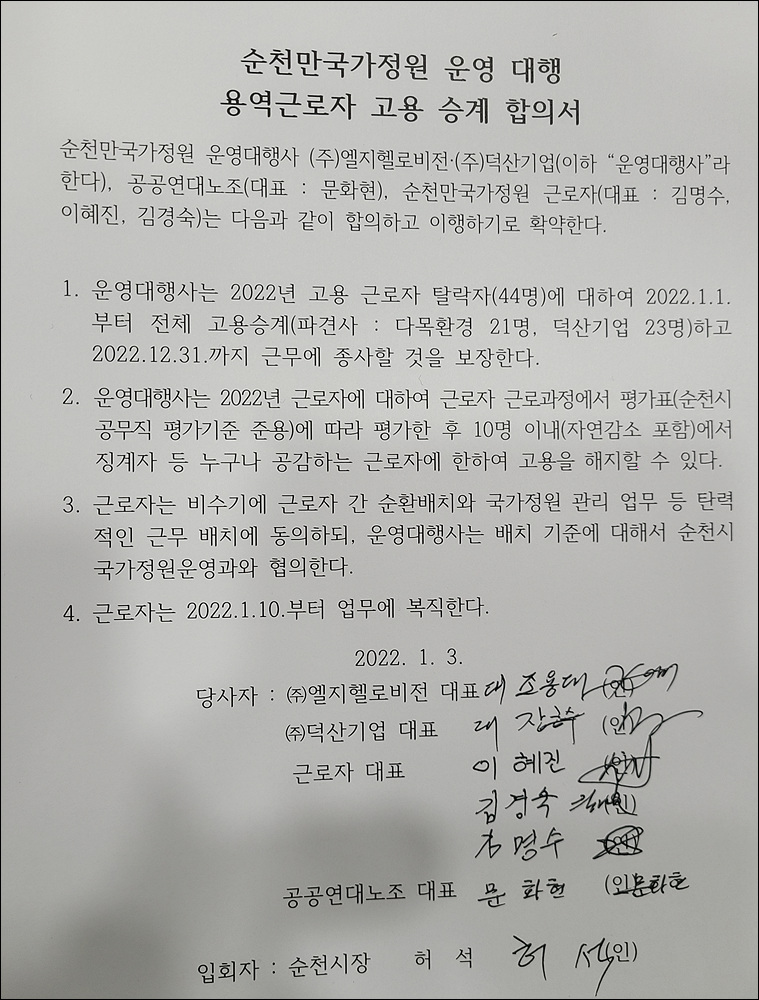 순천만국가정원 운영 대행
용역근로자 고용 승계 합의서
순천만국가정원 운영대행사 (주)엘지헬로비전·(주)덕산기업(이하 “운영대행사”라
한다), 공공연대노조(대표 : 문화현), 순천만국가정원 근로자(대표 : 김명수,
이혜진, 김경숙)는 다음과 같이 합의하고 이행하기로 확약한다.
1. 운영대행사는 2022년 고용 근로자 탈락자(44명)에 대하여 2022.1.1.
부터 전체 고용승계(파견사 : 다목환경 21명, 덕산기업 23명)하고
2022.12.31.까지 근무에 종사할 것을 보장한다.
2. 운영대행사는 2022년 근로자에 대하여 근로자 근로과정에서 평가표(순천시
공무직 평가기준 준용)에 따라 평가한 후 10명 이내(자연감소 포함)에서
징계자 등 누구나 공감하는 근로자에 한하여 고용을 해지할 수 있다.
3. 근로자는 비수기에 근로자 간 순환배치와 국가정원 관리 업무 등 탄력
적인 근무 배치에 동의하되, 운영대행사는 배치 기준에 대해서 순천시
국가정원운영과와 협의한다.
4. 근로자는 2022.1.10.부터 업무에 복직한다.
2022. 1. 3.
당사자 : ㈜엘지헬로비전 대표 대 조용대 (인)
㈜덕산기업 대표 대 장금수 (인)
근로자 대표 이혜진 (인)
김경숙 (인)
김명수 (인)
공공연대노조 대표 문화현 (인) 문화현
입회자 : 순천시장 허 석 허 석 (인)